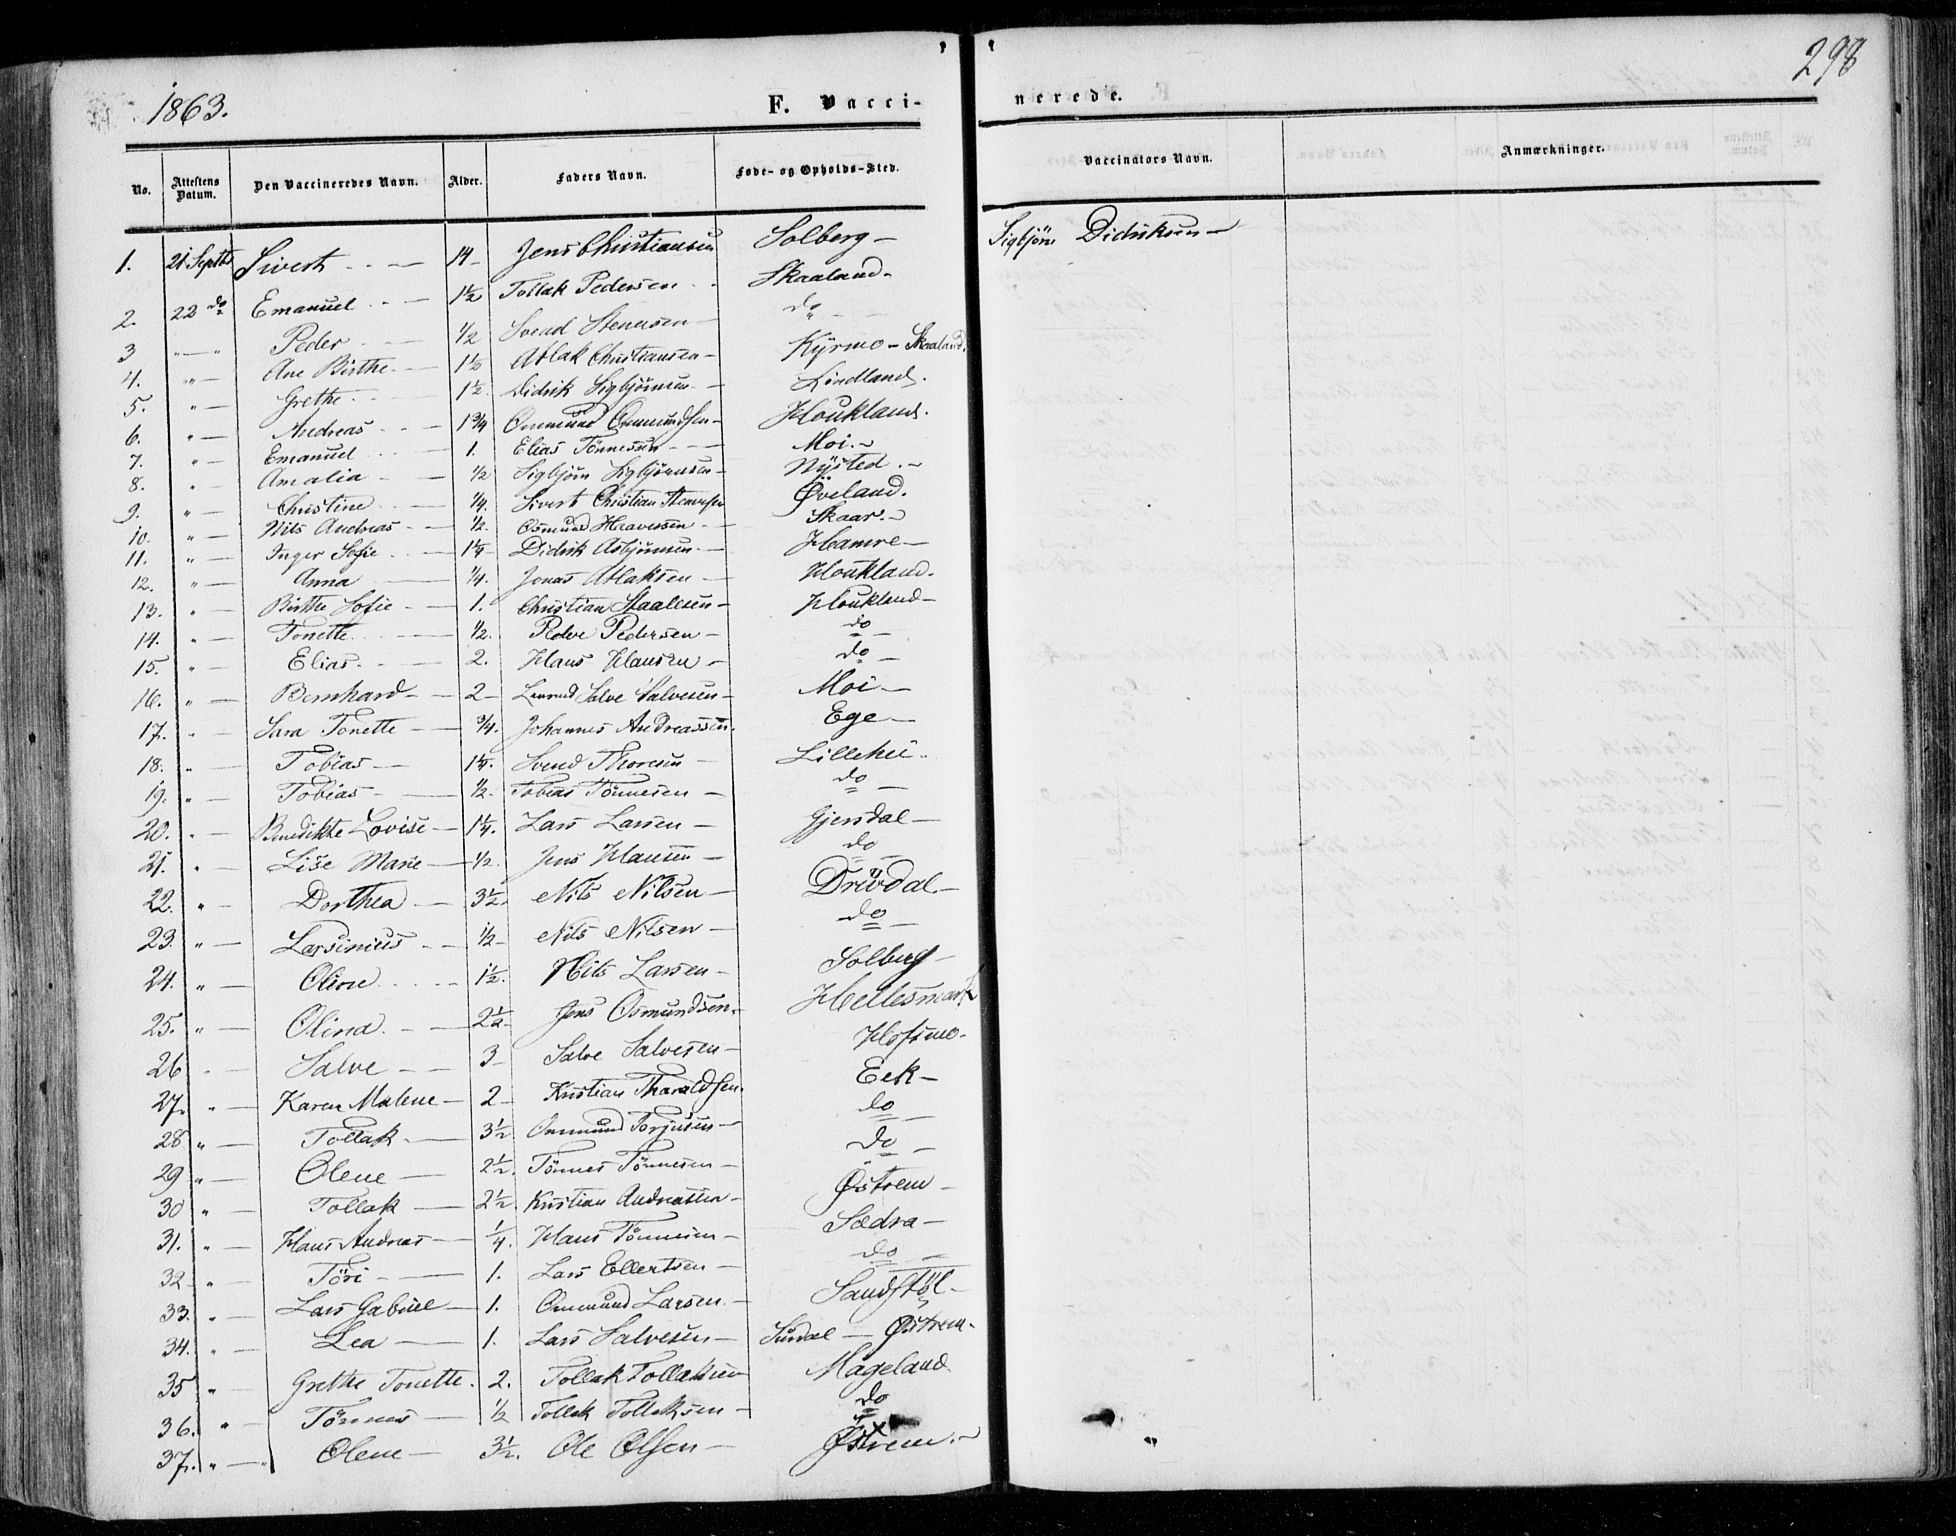 298
1863.
F. Vacci- nerede.
No. Attestens Datum. Den Vaccineredes Navn. Alder. Faders Navn. Føde- og Opholds-Sted. Vaccinators Navn. Anmærkninger.
1. 21 Septbr Sivert 14 Jens Christiansen Solberg Sigbjörn Didriksen
2. 22 do Emanuel 1½ Tollak Pedersen Skaaland
3 " Peder ½ Svend Stenesen do
4. " Ane Birthe 1½ Atlak Christiansen Kyrmo - Skaaland.
5. " Grethe 1½ Didrik Sigbjörnsen Lindland.
6. " Andreas 1¾ Ommund Ommundsen Houkland.
7. " Emanuel 1. Elias Tönnesen Moi.
8. " Amalia ½ Sigbjörn Sigbjörnsen Nysted.
9. " Christine ¼ Sivert Christian Øveland.
10. " Nils Andreas ½. Osmund Haavessen Skaar.
11. " Inger Sofie 1¼ Didrik Asbjörnsen Hamre
12. " Anna ¼. Jonas Atlaksen Houkland.
13. " Birthe Sofie 1. Christian Staalesen Houkland
14. " Tonette ½. Peder Pedersen do
15. " Elias 2. Hans Hansen do
16. " Bernhard 2 Salve Salvesen Moi
17. " Sara Tonette ¾. Johannes Andreassen. Ege
18. " Tobias 1¼. Svend Thoresen Lillehei.
19. " Tobias ½. Tobias Tönnesen do
20. " Benedikte Lovise 1¼. Lars Larsen Gjersdal
21. " Lise Marie ½. Jens Hansen do
22. " Dorthea 3½ Nils Nilsen Drivdal
23. " Larsinius ½ Nils Nilsen do
24. " Oline 1½. Nils Larsen Solberg
25. " Olina 2½ Jens Osmundsen. Hellesmark
26 Salve 3 Salve Salvesen Hofsmo
27. " Karen Malene 2 Kristian Tharaldsen. Eek
28 " Tollak 3½ Ommund Torjusen do
29 " Olene 2½. Tönnes Tönnesen do
30 " Tollak 2½ Kristian Andreassen Østrem
31. " Hans Andreas ¼. Hans Tönnesen Sædra
32 " Töri 1. Lars Ellertsen do
33. " Lars Gabriel 1. Ommund Larsen Sandstöl
34. " Lea 1. Lars Salvesen Surdal - Østrem.
35 " Grethe Tonette. 2. Tollak Tollaksen Mageland
36. " Tönnes ½ Tollak Tollaksen do
37. " Olene 3½. Ole Olsen Østrem.